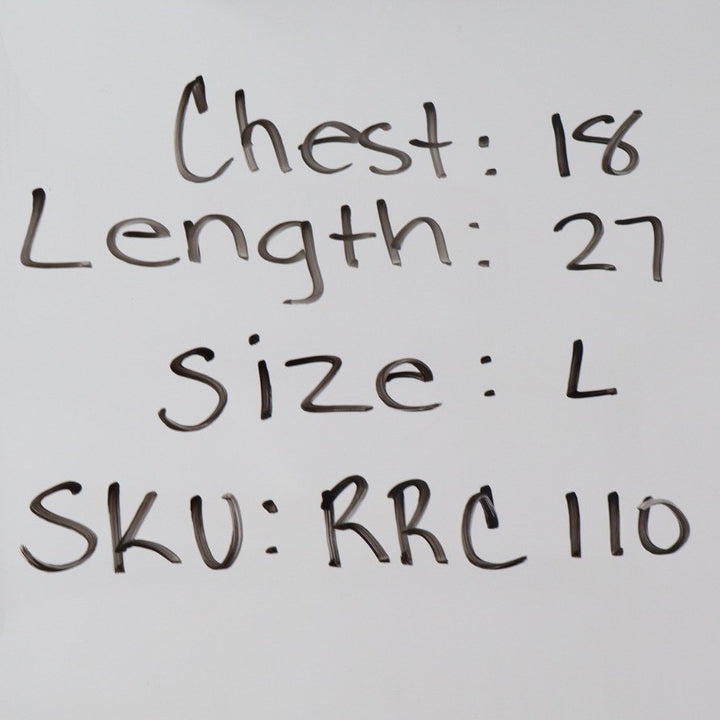 Chest: 18
Length: 27
Size: L
SKU: RRC 110